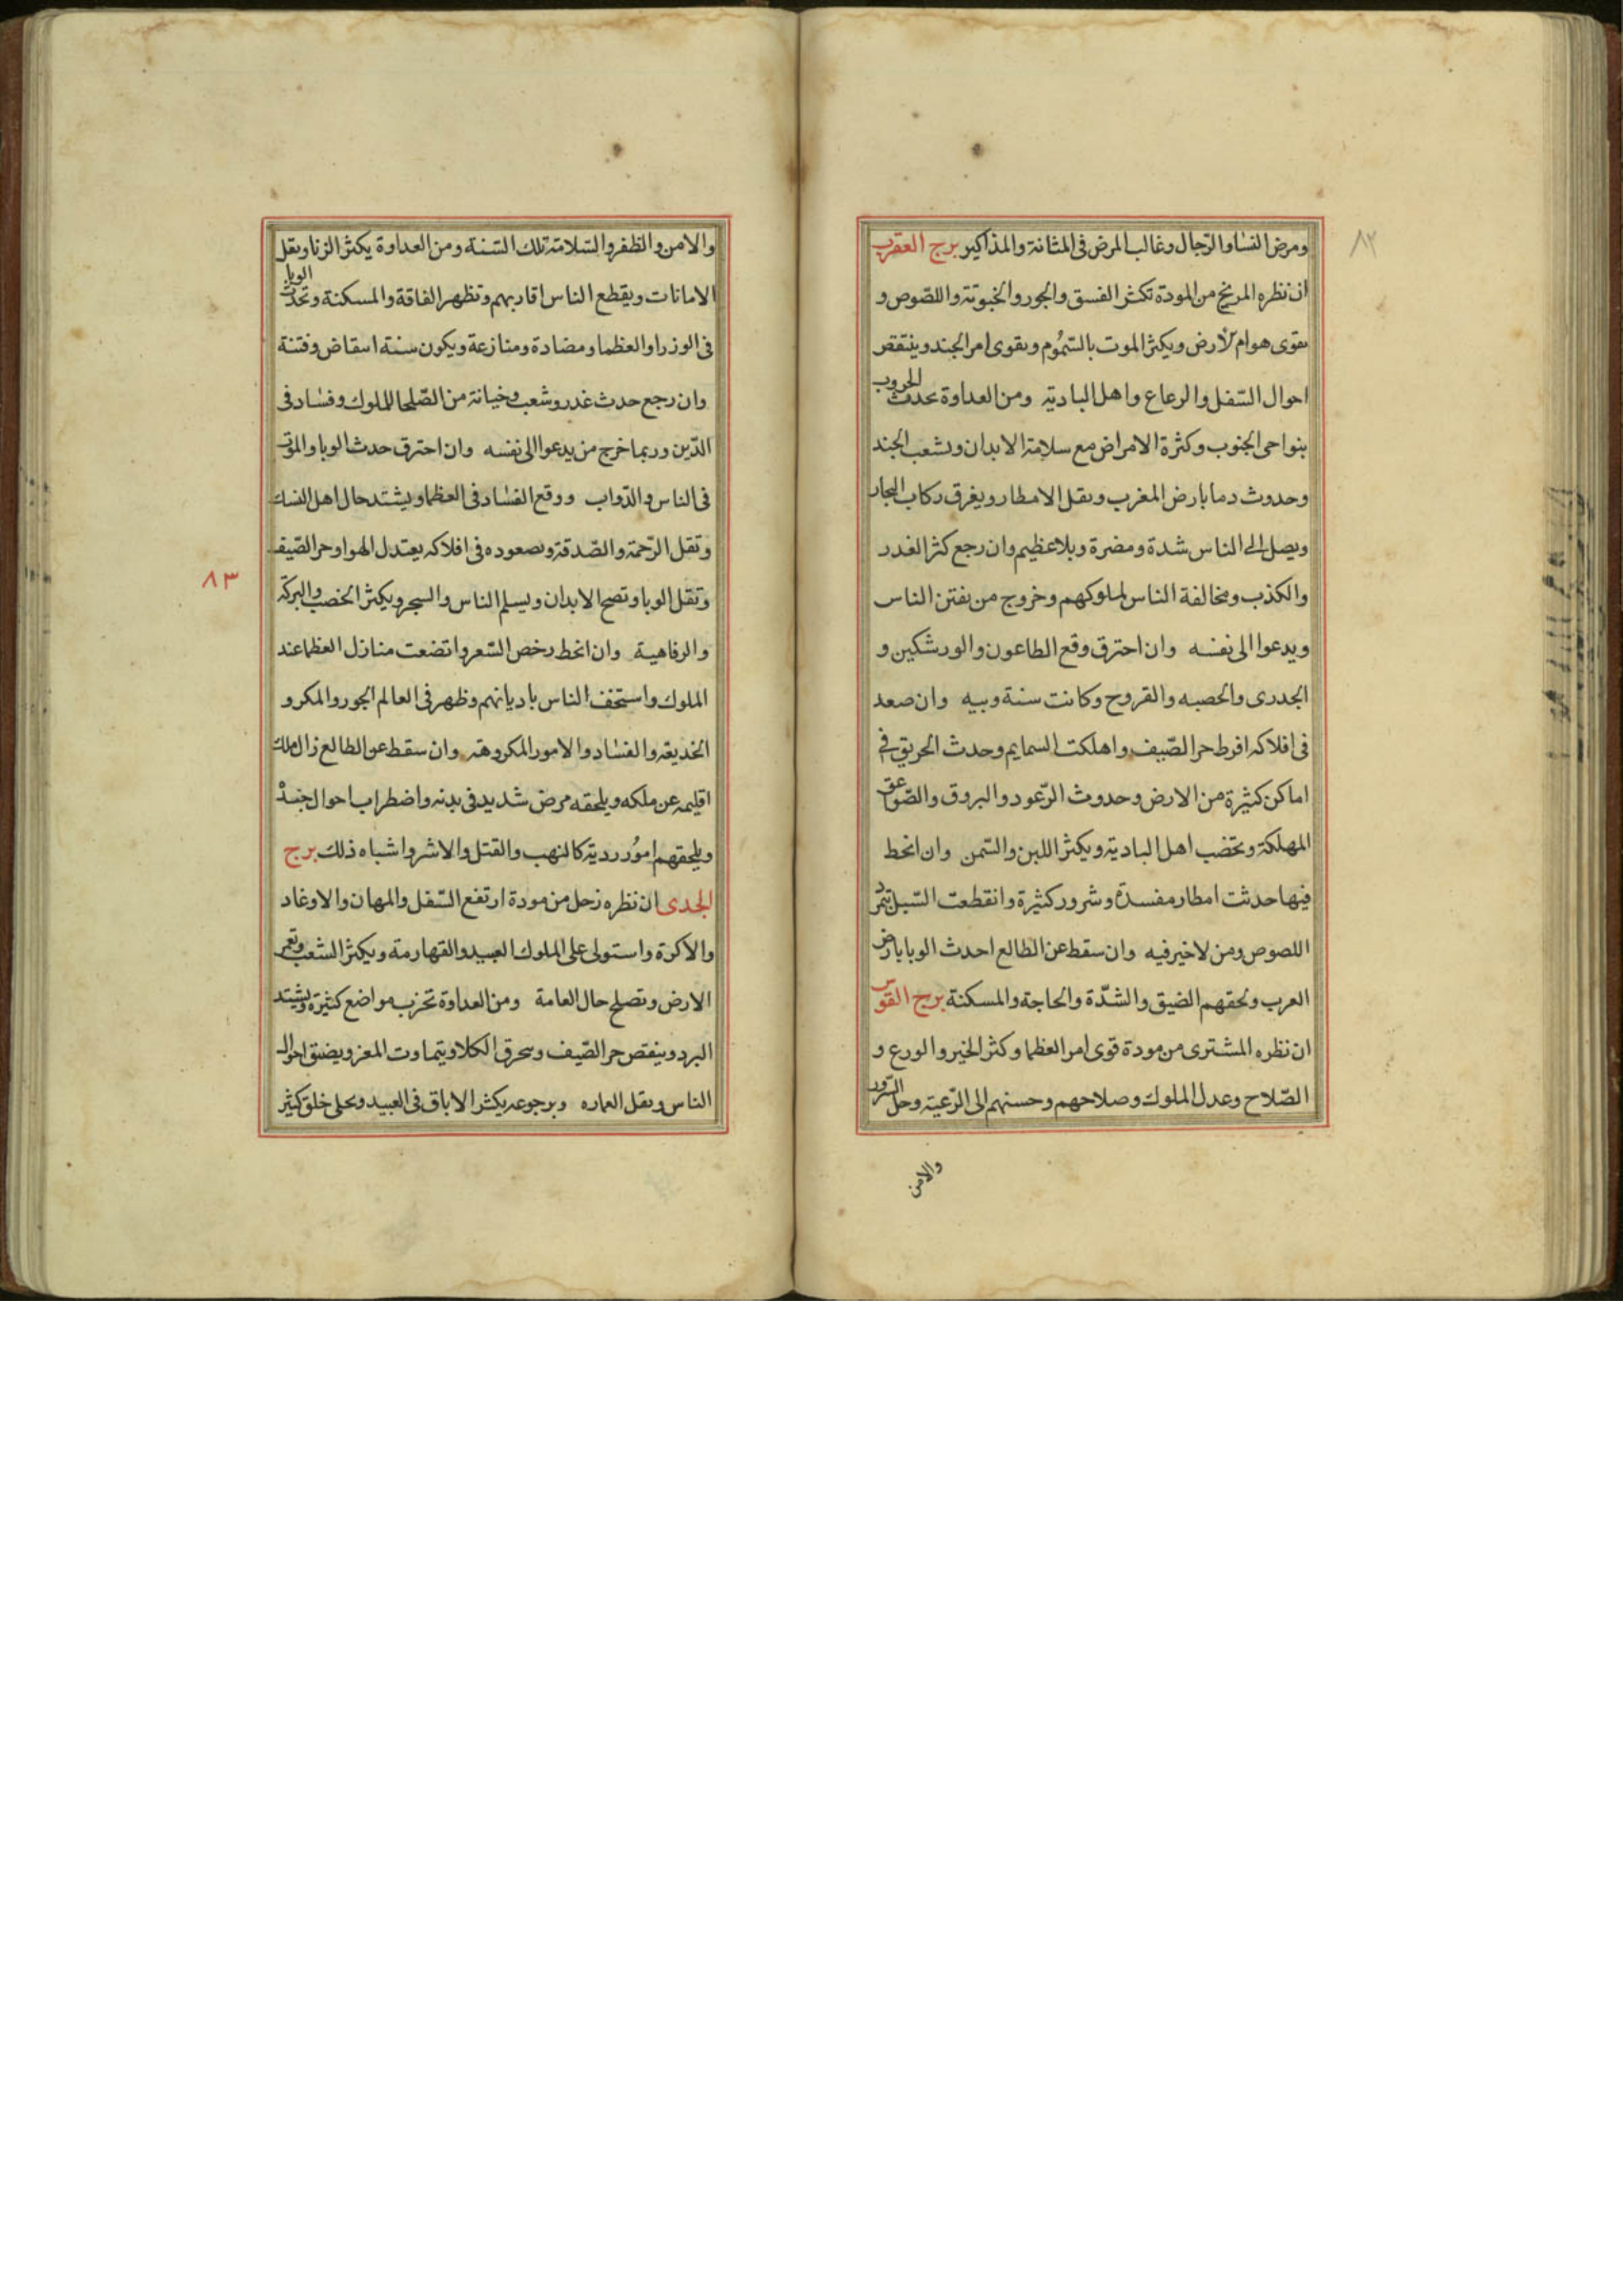 ٨٢
ومرض النسا والرّجال وغالب المرض فى المثانة والمذاكير برج العقرب
ان نظره المريخ من المودة تكثر الفسق والجور واللصّوص و
يقوى هوام الارض ويكثر الموت بالسّموم ويقوى امر الجند وينتقص
احوال السّفل والرعاع واهل البادية ومن العداوة تحدث الحروب
بنواحى الجنوب وكثرة الامراض مع سلامة الابدان ويشعب الجند
وحدوث دما بارض المغرب ويقل الامطار ويغرق ركاب البحار
ويصل الى الناس شدة ومضرة وبلا عظيم وان رجع كثر الغدر
والكذب ومخالفة الناس لملوكهم وخروج من يفتن الناس
ويدعوا الى نفسه وان احترق وقع الطاعون والورشكين و
الجدرى والحصبه والقروح وكانت سنة وبيه وان صعد
فى افلاكه افرط حر الصّيف واهلكت السمايم وحدث الحريق فى
اماكن كثيرة من الارض وحدوث الرّعود والبروق والصّواعق
المهلكة وتخضب اهل البادية ويكثر اللبن والسّمن وان انحط
فيها حدثت امطار مفسدة وشرور كثيرة وانقطعت السّبل
اللصوص ومن لا خير فيه وان سقط عن الطالع احدث الوبا بارض
العرب ولحقهم الضيق والشدّة والحاجة والمسكنة برج القوس
ان نظره المشترى من مودة قوى امر العظما وكثر الخير والورع و
الصّلاح وعدل الملوك وصلاحهم وحسنهم الى الرّعية وحل السّرور
والامن
والامن والظفر والسّلامة تلك السّنة ومن العداوة يكثر الزنا ويقل
الامانات ويقطع الناس اقاربهم وتظهر الفاقة والمسكنة وتحدث الوبا
فى الوزرا والعظما ومضادة ومنازعة ويكون سنة انتقاض وفتنة
وان رجع حدث غدر وشعب وخيانة من الصّلحا للملوك وفساد فى
الدّين وربما خرج من يدعوا الى نفسه وان احترق حدث الوبا والموت
فى الناس والدّواب ووقع الفساد فى العظما ويشتد حال اهل النسك
وتقل الرّحمة والصّدقة وبصعوده فى افلاكه يعتدل الهوا وحر الصّيف
وتقل الوبا وتصح الابدان ويسلم الناس والسجر ويكثر الخصب والبركة
٨٣
والرفاهية وان انحط رخص السّعر واتضعت منازل العظما عند
الملوك واستخف الناس باديانهم وظهر فى العالم الجور والمكر و
الخديعة والفساد والامور المكروهة وان سقط عن الطالع زال ملك
اقليمه عن ملكه ويلحقه مرض شديد فى بدنه واضطراب احوال جنده
ويلحقهم امور ردية كالنهب والقتل والاشر واشباه ذلك برج
الجدى ان نظره زحل من مودة ارتفع السّفل والمهان والاوغاد
والاكرة واستولى على الملوك العبيد والقهارمة ويكثر الشعب وتعمر
الارض وتصلح حال العامة ومن العداوة تخرب مواضع كثيرة ويشتد
البرد وينقص حر الصّيف ويحرق الكلا ويتماوت المعز ويضيق احوال
الناس ويقل العماره وبرجوعه يكثر الاباق فى العبيد خلق كثير